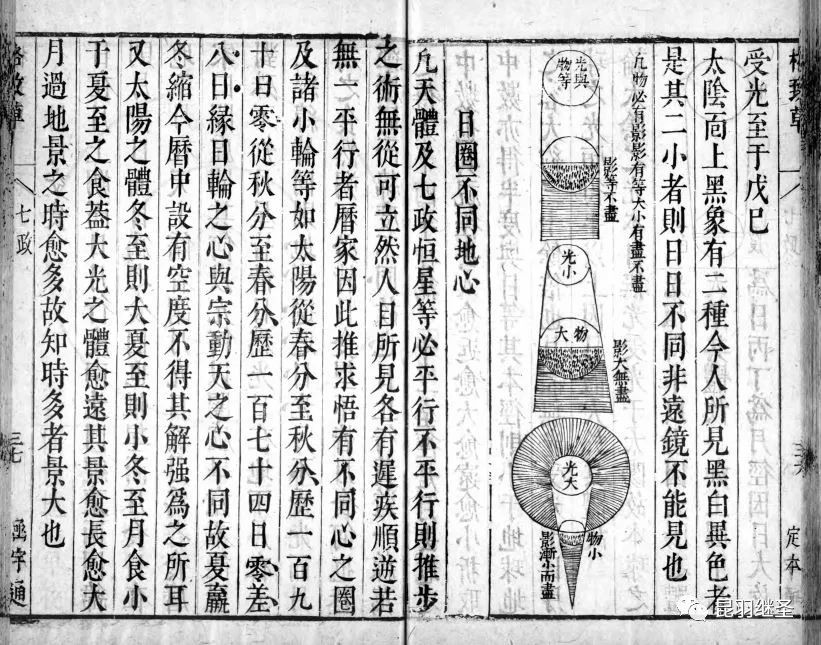 受光至于戊巳
太陰靣上黑象有二種今人所見黑白異色者
是其二小者則日日不同非遠鏡不能見也
凡物必有影影有等大小有盡不盡
光與物等
影等不盡
光小
物大
影大無盡
光大
物小
影漸小而盡
日圈不同地心
凡天體及七政恒星等必平行不平行則推步
之術無從可立然人目所見各有遲疾順逆若
無一平行者曆家因此推求悟有不同心之圈
及諸小輪等如太陽從春分至秋分歷一百九
十日零從秋分至春分歷一百七十四日零差
八日緣日輪之心與宗動天之心不同故夏贏
冬縮今曆中設有空度不得其解强爲之所耳
又太陽之體冬至則大夏至則小冬至月食小
于夏至之食葢大光之體愈遠其景愈長愈大
月過地景之時愈多故知時多者景大也
格致草
七政
三七
函宇通
定本
昆羽继圣